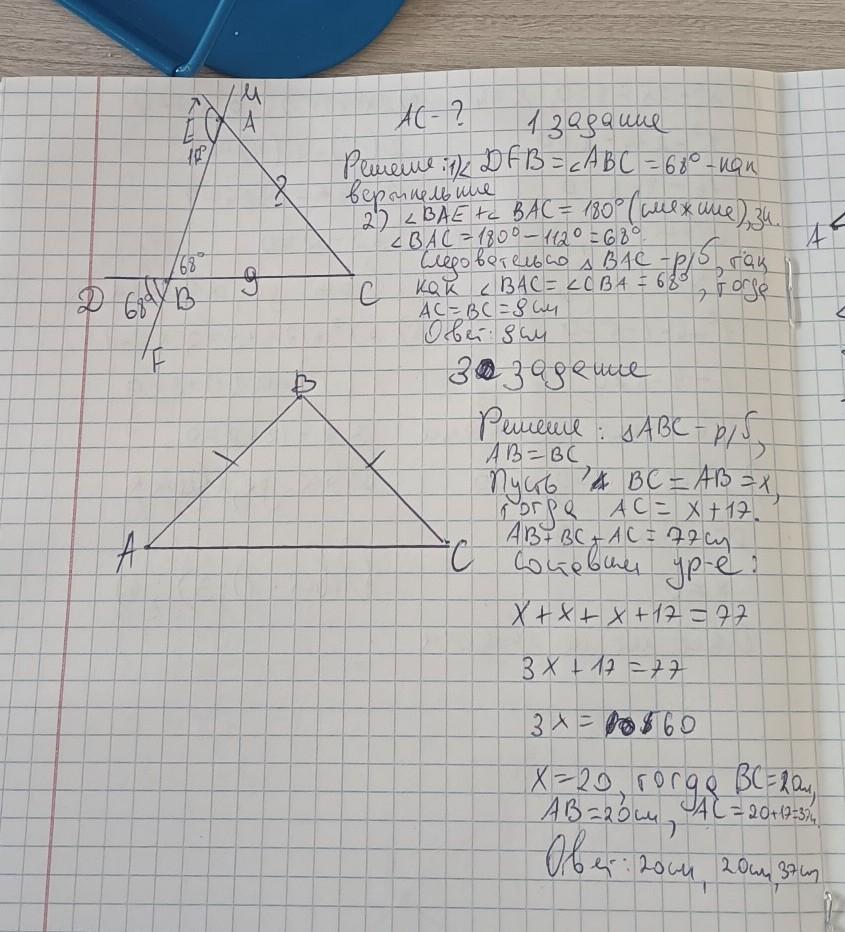 M
E A
112°
?
68°
D 68° B 9 C
F
AC - ? 1 задание
Решение: 1) ∠DFB = ∠ABC = 68° - как
вертикальные
2) ∠BAE + ∠BAC = 180° (смежные), зн.
∠BAC = 180° - 112° = 68°.
Следовательно △ BAC - р/б, так
как ∠BAC = ∠CBA = 68°, тогда
AC = BC = 9 см
Ответ: 9 см
3 задание
B
A C
Решение: △ABC - р/б,
AB = BC
Пусть BC = AB = x,
тогда AC = x + 17.
AB + BC + AC = 77 см
Составим ур-е:
x + x + x + 17 = 77
3x + 17 = 77
3x = 60
x = 20, тогда BC = 20 см,
AB = 20 см, AC = 20 + 17 = 37 см.
Ответ: 20 см, 20 см, 37 см
A